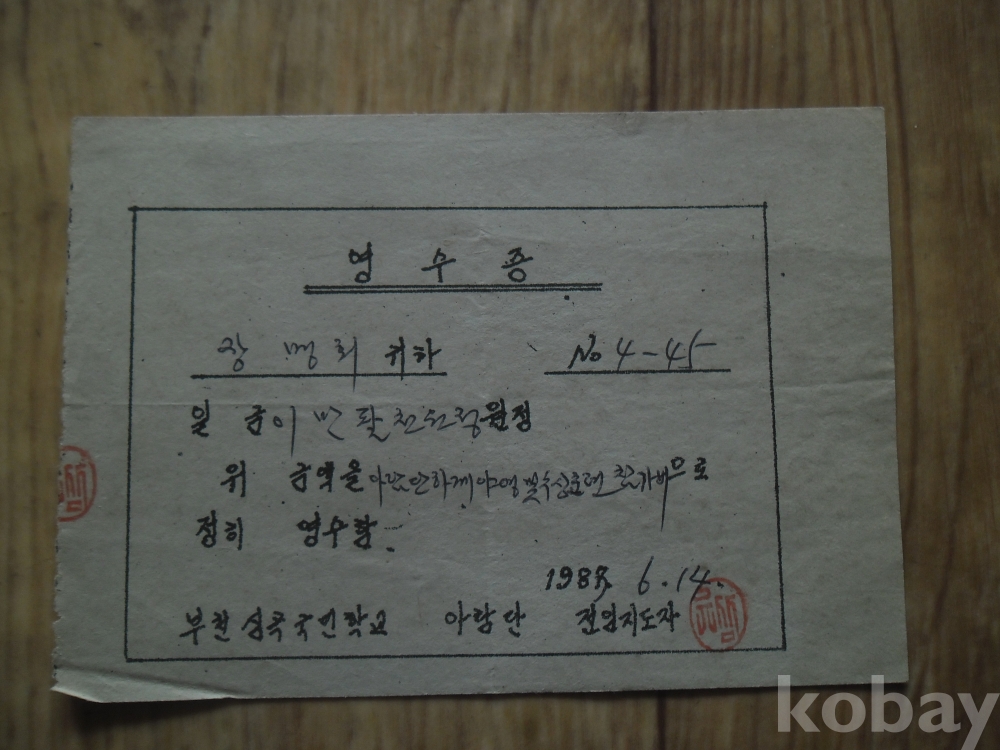 영 수 증
장 명 희 귀하 No 4-45
일 금 이 만 팔 천 원정
위 금액을 아람단 하계야영 및 수상훈련 참가비으로
정히 영수함.
1987. 6. 14.
부천심곡국민학교 아람단 전임지도자
kobay